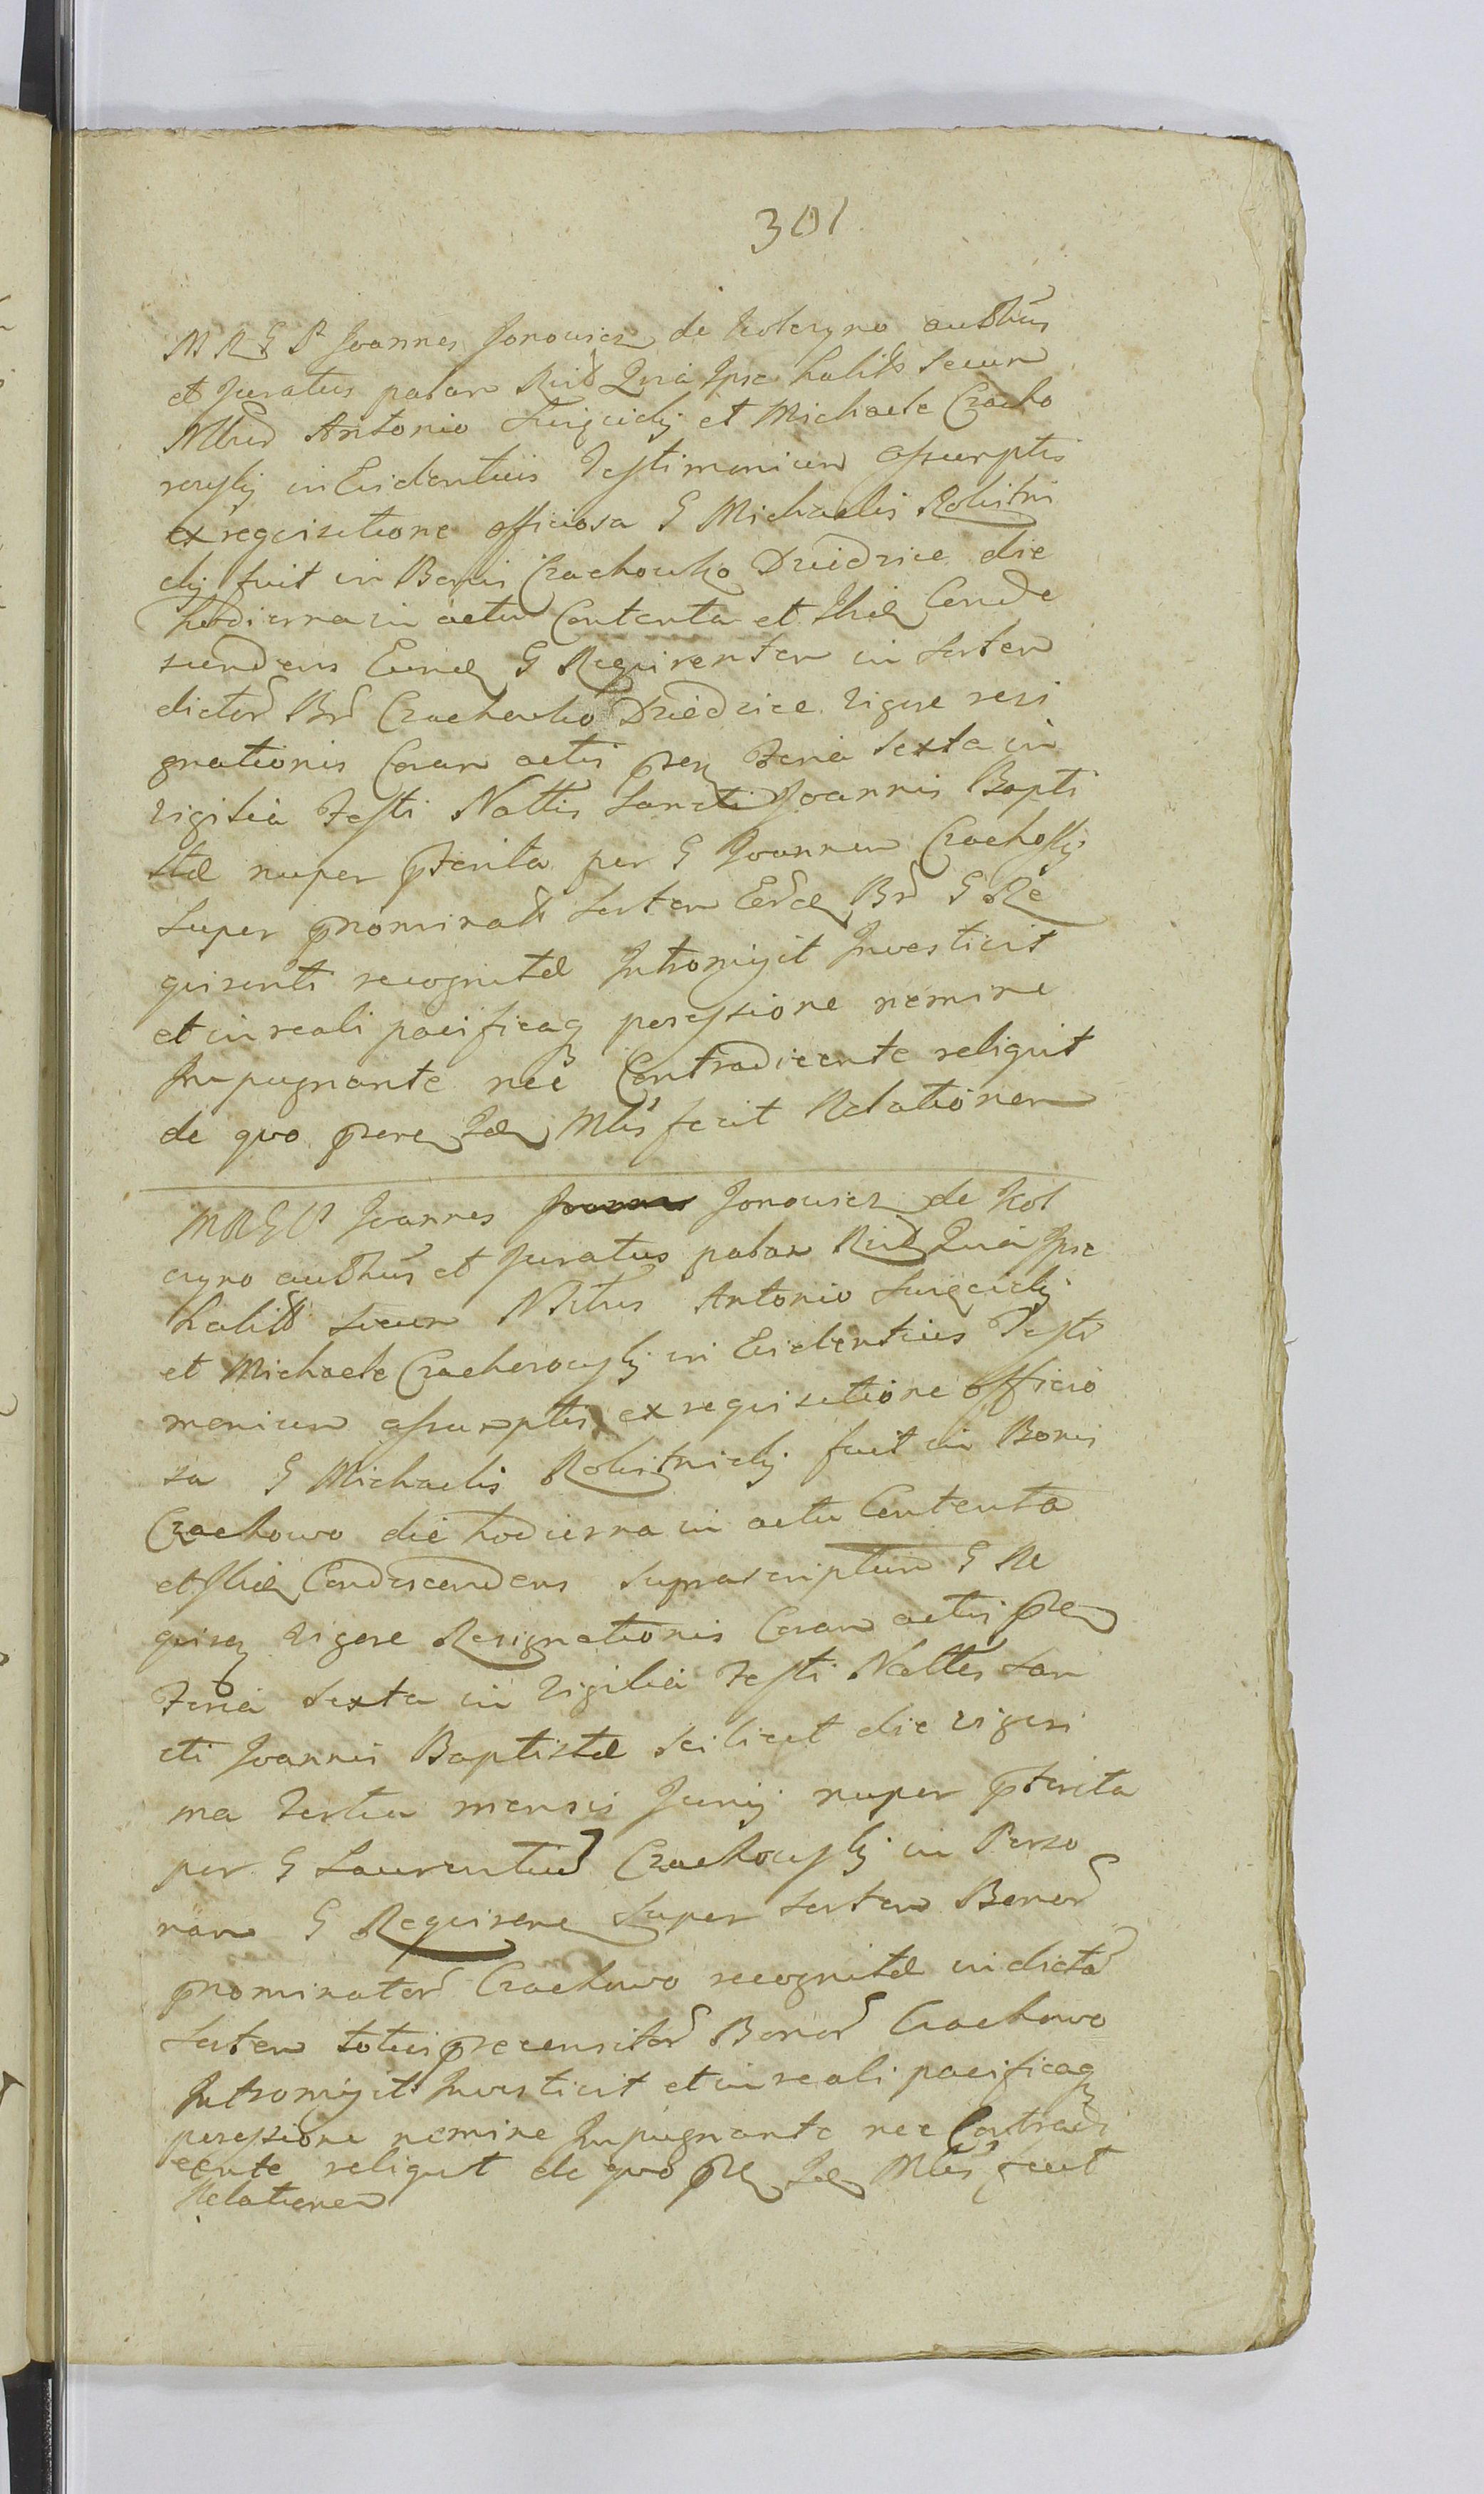 301
M R G P Joannes Janowicz de Kolczyno authus
et Juratus palam Recd Quia Ipse habits secum
Nlbus Antonio et Michaele Czacho
rowskj in Evidentius Testimonium assumptis
ex requisitione officiosa G Michaelis Robitni
ckj fuit in Bonis Czachowko Dziedzice die
hodierna in actu Contenta et Ibiq Conde
scendens Eundq G Requirentem in sortem
dictor Br Czachowko Dziedzice vigore resi
gnationis Coram actis pnq Feria Sexta in
vigilia Festi Nattis Sancti Joannis Bapti
stæ nuper pterita per G Joannem Czachoskj
super pnominata sortem Eordq Br G Re
quirenti recognitæ Intromisit Investivit
et in reali pacificaq possessione nemine
Impugnante nec Contradicente reliquit
de quo Idq Mlis fecit Relationem
M R G P Joannes Janowicz de Kol
czyno authus et Juratus palam Recd Quia Ipse
habits secum Nlbus Antonio
et Michaele Czachorowskj in Evidentius Testi
monium assumptis ex requisitione officio
sa G Michaelis Robitnickj fuit in Bonis
Czachowo die hodierna in actu Contenta
et Ibiq Condescendens suprascriptum G Re
quirq vigore Resignationis Coram actis pnq
Feria Sexta in vigilia Festi Nattis San
cti Joannis Baptistæ scilicet die vigesi
ma tertia mensis Junij nuper pterita
per G Laurentiu Czachowskj in Perso
nam G Requirenq super sortem Bonor
pnominator Czachowo recognitæ in dicta
sortem totius precensitor Bonor Czachowo
Intromisit Investivit et in reali pacificaq
possessione nemine Impugnante nec Contradi
cente reliquit de quo Idq Mlis fecit
Relationem